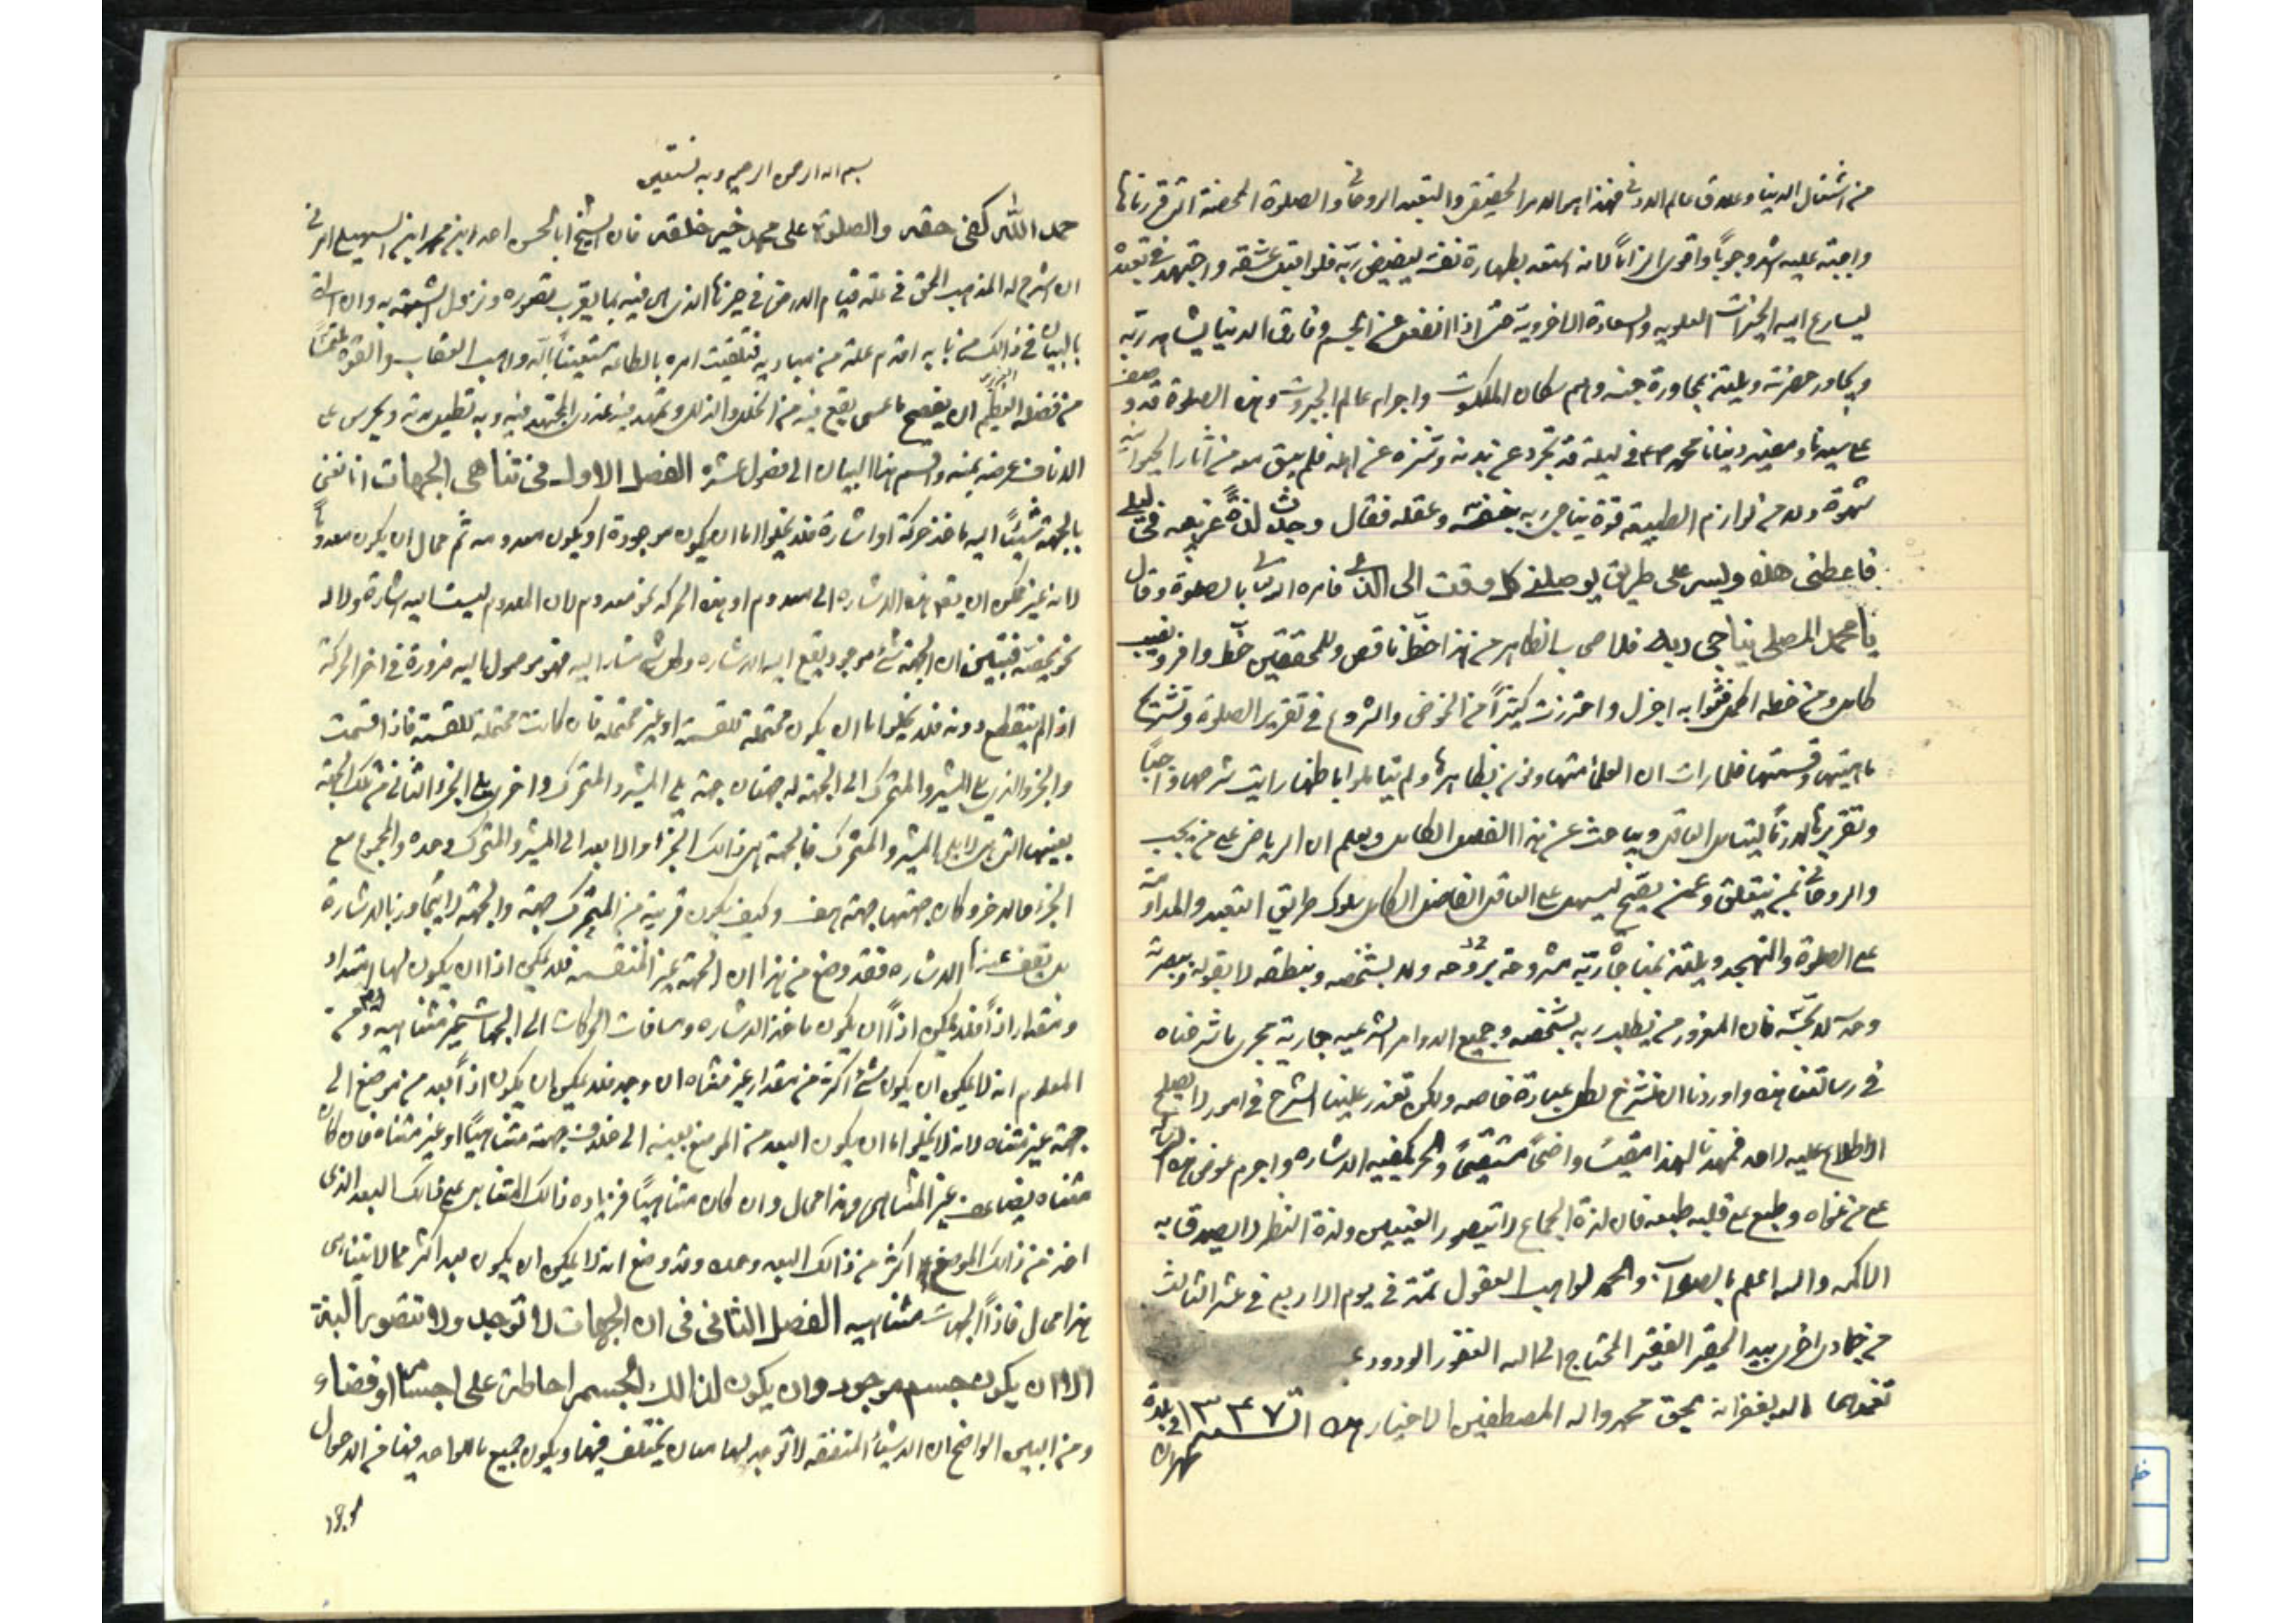 من اشتغال الدنيا وعلائق عالم الدنى فهذا هو الامر الحقيقى والتعبد الروحانى والصلوة المحضة التى قررناها
واجبة عليه اشد وجوبًا واقوى الزامًا لانه استعد بطهارة نفسه لفيض ربه فلو اقبل بعشقه واجتهد فى تعبده
ليسارع اليه الخيرات العلويه والسعادة الاخروية حتى اذا انفصل عن الجسم وفارق الدنيا يشاهد ربه
ويجاور حضرته ويلتذ بمجاورة جنسه وهم سكان الملكوت واجرام عالم الجبروت وهذه الصلوة قد وجبت
على سيدنا ومفيد ديننا محمد ص فى ليلة قد تجرد عن بدنه وتنزه عن امله فلم يبق معه من آثار الحيوانية
شهوة ولا من لوازم الطبيعة قوة يناجى ربه بنفسه وعقله فقال وجدت لذة غريبه فى ليلتى
فاعطنى هذه ويسر على طريق يوصلنى كل وقت الى لذتى فامره الله تعالى بالصلوة وقال
يا محمد المصلى يناجى ربه فلاصحاب الظاهر من هذا حظ ناقص وللمحققين حظ وافر ونصيب
كامل ومن حظه اكمل فثوابه اجزل واحترزت كثيرًا من الخوض والشروع فى تقرير الصلوة وتشريح
ماهيتها وقسمتها فلما رأيت ان العقلاء متهاونون بظاهرها ولم يتاملوا باطنها رايت شرحها واجبًا
وتقريرها لازمًا ليتامل العاقل ويباحث عن هذا الفضل الكامل ويعلم ان الرياضى على من يجب
والروحانى بمن يتعلق وعمن يصح ليسهل على العاقل الفاضل الكامل سلوك طريق التعبد والمداومة
على الصلوة والتهجد ويلتذ بمناجاة ربه بروحه ولا بشخصه وبنطقه لا بقوله وببصيرته
وحسه لا بحسه فان المغرور من يطلب ربه بشخصه وجميع الاوامر الشرعيه جارية مجرى ما شرحناه
فى رسالتنا هذه واوردنا ان نشرح لكل عبادة خاصه ولكن تعذر علينا الشرح فى امور لا يصلح
الاطلاع عليه لاحد فمهدنا لهذا تقسيمًا واضحًا مستقيمًا والحر يكفيه الاشاره واحرم عرض هذه الرسالة
على من غواه وطبع على قلبه طبعه فان لذة الجماع لا يتصور العنين ولذة النظر لا يصدق به
الاكمه والله اعلم بالصواب والحمد لواهب العقول تمت فى يوم الاربع فى عشر الثالث
من جمادى اخرى بيد الحقير الفقير المحتاج الى الله الغفور الودود
تغمدهما الله بغفرانه بحق محمد واله المصطفين الاخيار سنة ١٣٤٧ فى بلدة طهران
بسم الله الرحمن الرحيم وبه نستعين
حمد الله كفى حقه والصلوة على محمد خير خلقه فان الشيخ ابا الحسن احمد ابن محمد ابن السهيلى امرنى
ان اشرح له المذهب الحق فى علة قيام الارض فى حيزها الذى هى فيه بما يقرب تصوره ونزول الشبهة به وان
بالبيان فى ذالك من بابه اقدم علة من مباديه فتلقيت امره بالطاعة مستعينًا بالله واهب العقل والقوة ملتمسًا
من فضله العظيم ان يصفح ما عسى يقع فيه من الخلل والزلل ويمهد فيه عذرى المجتهد فيه وبه
الدنائة عرضه بمنه واقسم هذا البيان الى فصول عشره الفصل الاول فى تناهى الجهات انا نعنى
بالجهة شيئًا اليه ماخذ حركة او اشارة فلا يخلوا اما ان يكون موجودة او يكون معدومه ثم محال ان يكون معدومًا
لانه غير ممكن ان يقع هذه الاشاره الى معدوم او هذه الحركه نحو معدوم لان المعدوم ليست اليه اشارة ولا له
نحو يخصه فتبين ان الجهة شئ موجود يقع اليه الاشاره وكل شئ مشار اليه فهو موصول اليه ضرورة فى اخر الحركة
اذ لم ينقطع دونه فلا يخلوا اما ان يكون محتملة للقسمة او غير محتملة فان كانت محتملة للقسمة فاذا اقسمت
والجزء الذى يلى المشير والمتحرك الى الجهة له جهتان جهة يلى المشير والمتحرك واخرى يلى الجزء الثانى من تلك الجهة
بعينها التى هى لا يلى المشير والمتحرك فالجهة هى ذالك الجزء اولا ابعد الى المشير والمتحرك وحده والمجموع مع
الجزء الاخر وكان جهتها جهة هف وكيف يكون قريبة من المتحرك جهة والجهة لا يتجاوزها بالاشارة
بل يقف عندها الاشاره فقد وضح من هذا ان الجهة غير المنقسمه فلا يمكن اذا ان يكون لها امتداد
ومقدار اذًا فلا يمكن اذًا ان يكون ماخذ الاشاره ومسافات الحركات الى الجهات غير متناهيه
المعلوم انه لا يمكن ان يكون شئ اكثر من مقدار غير متناه ان وجد فلا يمكن ان يكون اذًا بعد من موضع الى
جهة غير متناه لانه لا يخلوا اما ان يكون البعد من الموضع بعينه الى خلاف جهة متناهيًا او غير متناه فان كان
متناه يضاعف غير المتناهى وهذا محال وان كان متناهيًا فزياده ذالك المتناهى على ذالك البعد الذى
اخذ من ذالك الموضع اكثر من ذالك البعد وحده وقد وضح انه لا يمكن ان يكون بعد اكثر مما لا يتناهى
هذا محال فاذًا الجهات متناهيه الفصل الثانى فى ان الجهات لا توجد ولا تتصور البتة
الا ان يكون جسم موجود وان يكون لذالك الجسم احاطة على اجسام او فضاء
ومن البين الواضح ان الاشياء المتفقه لا توجد لها معان يختلف فيها ويكون جميع ما للواحد فيها من الاحوال